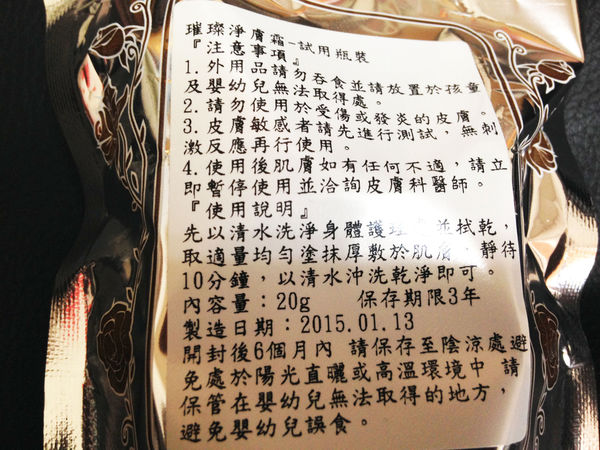 璀璨淨膚霜-試用瓶裝
『注意事項』
1.外用品請勿吞食並請放置於孩童
及嬰幼兒無法取得處。
2.請勿使用於受傷或發炎的皮膚。
3.皮膚敏感者請先進行測試，無刺
激反應再行使用。
4.使用後肌膚如有任何不適，請立
即暫停使用並洽詢皮膚科醫師。
『使用說明』
先以清水洗淨身體護理 並拭乾，
取適量均勻塗抹厚敷於肌膚，靜待
10分鐘，以清水沖洗乾淨即可。
內容量：20g 保存期限3年
製造日期：2015.01.13
開封後6個月內 請保存至陰涼處避
免處於陽光直曬或高溫環境中 請
保管在嬰幼兒無法取得的地方，
避免嬰幼兒誤食。